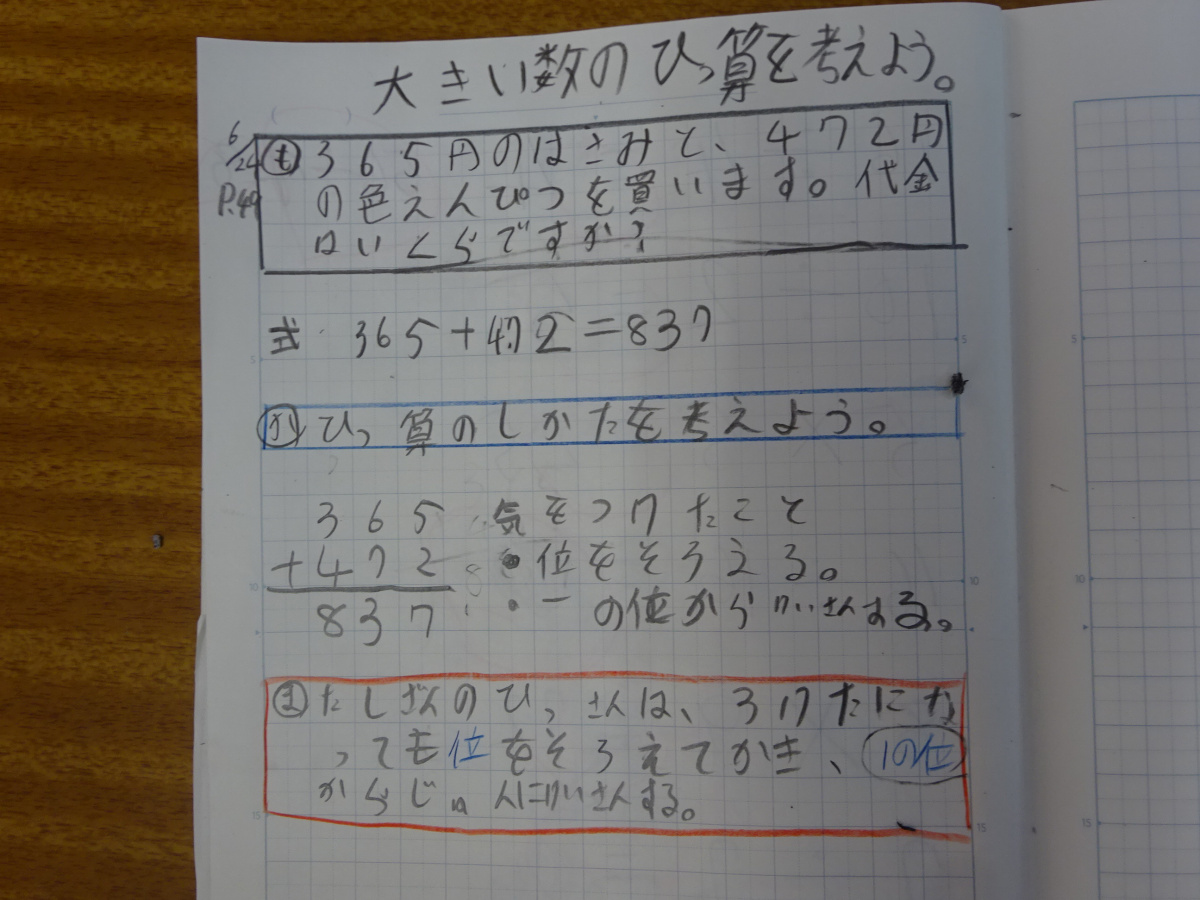 大きい数のひっ算を考えよう。
6/24
P.49
も 365円のはさみと、472円
の色えんぴつを買います。代金
はいくらですか?
式 365+472=837
か ひっ算のしかたを考えよう。
365 気をつけたこと
+472 ・位をそろえる。
837 ・一の位からけいさんする。
ま たしざんのひっさんは、3けたにな
っても位をそろえてかき、1の位
からじゅんにけいさんする。
5
10
15
5
10
15